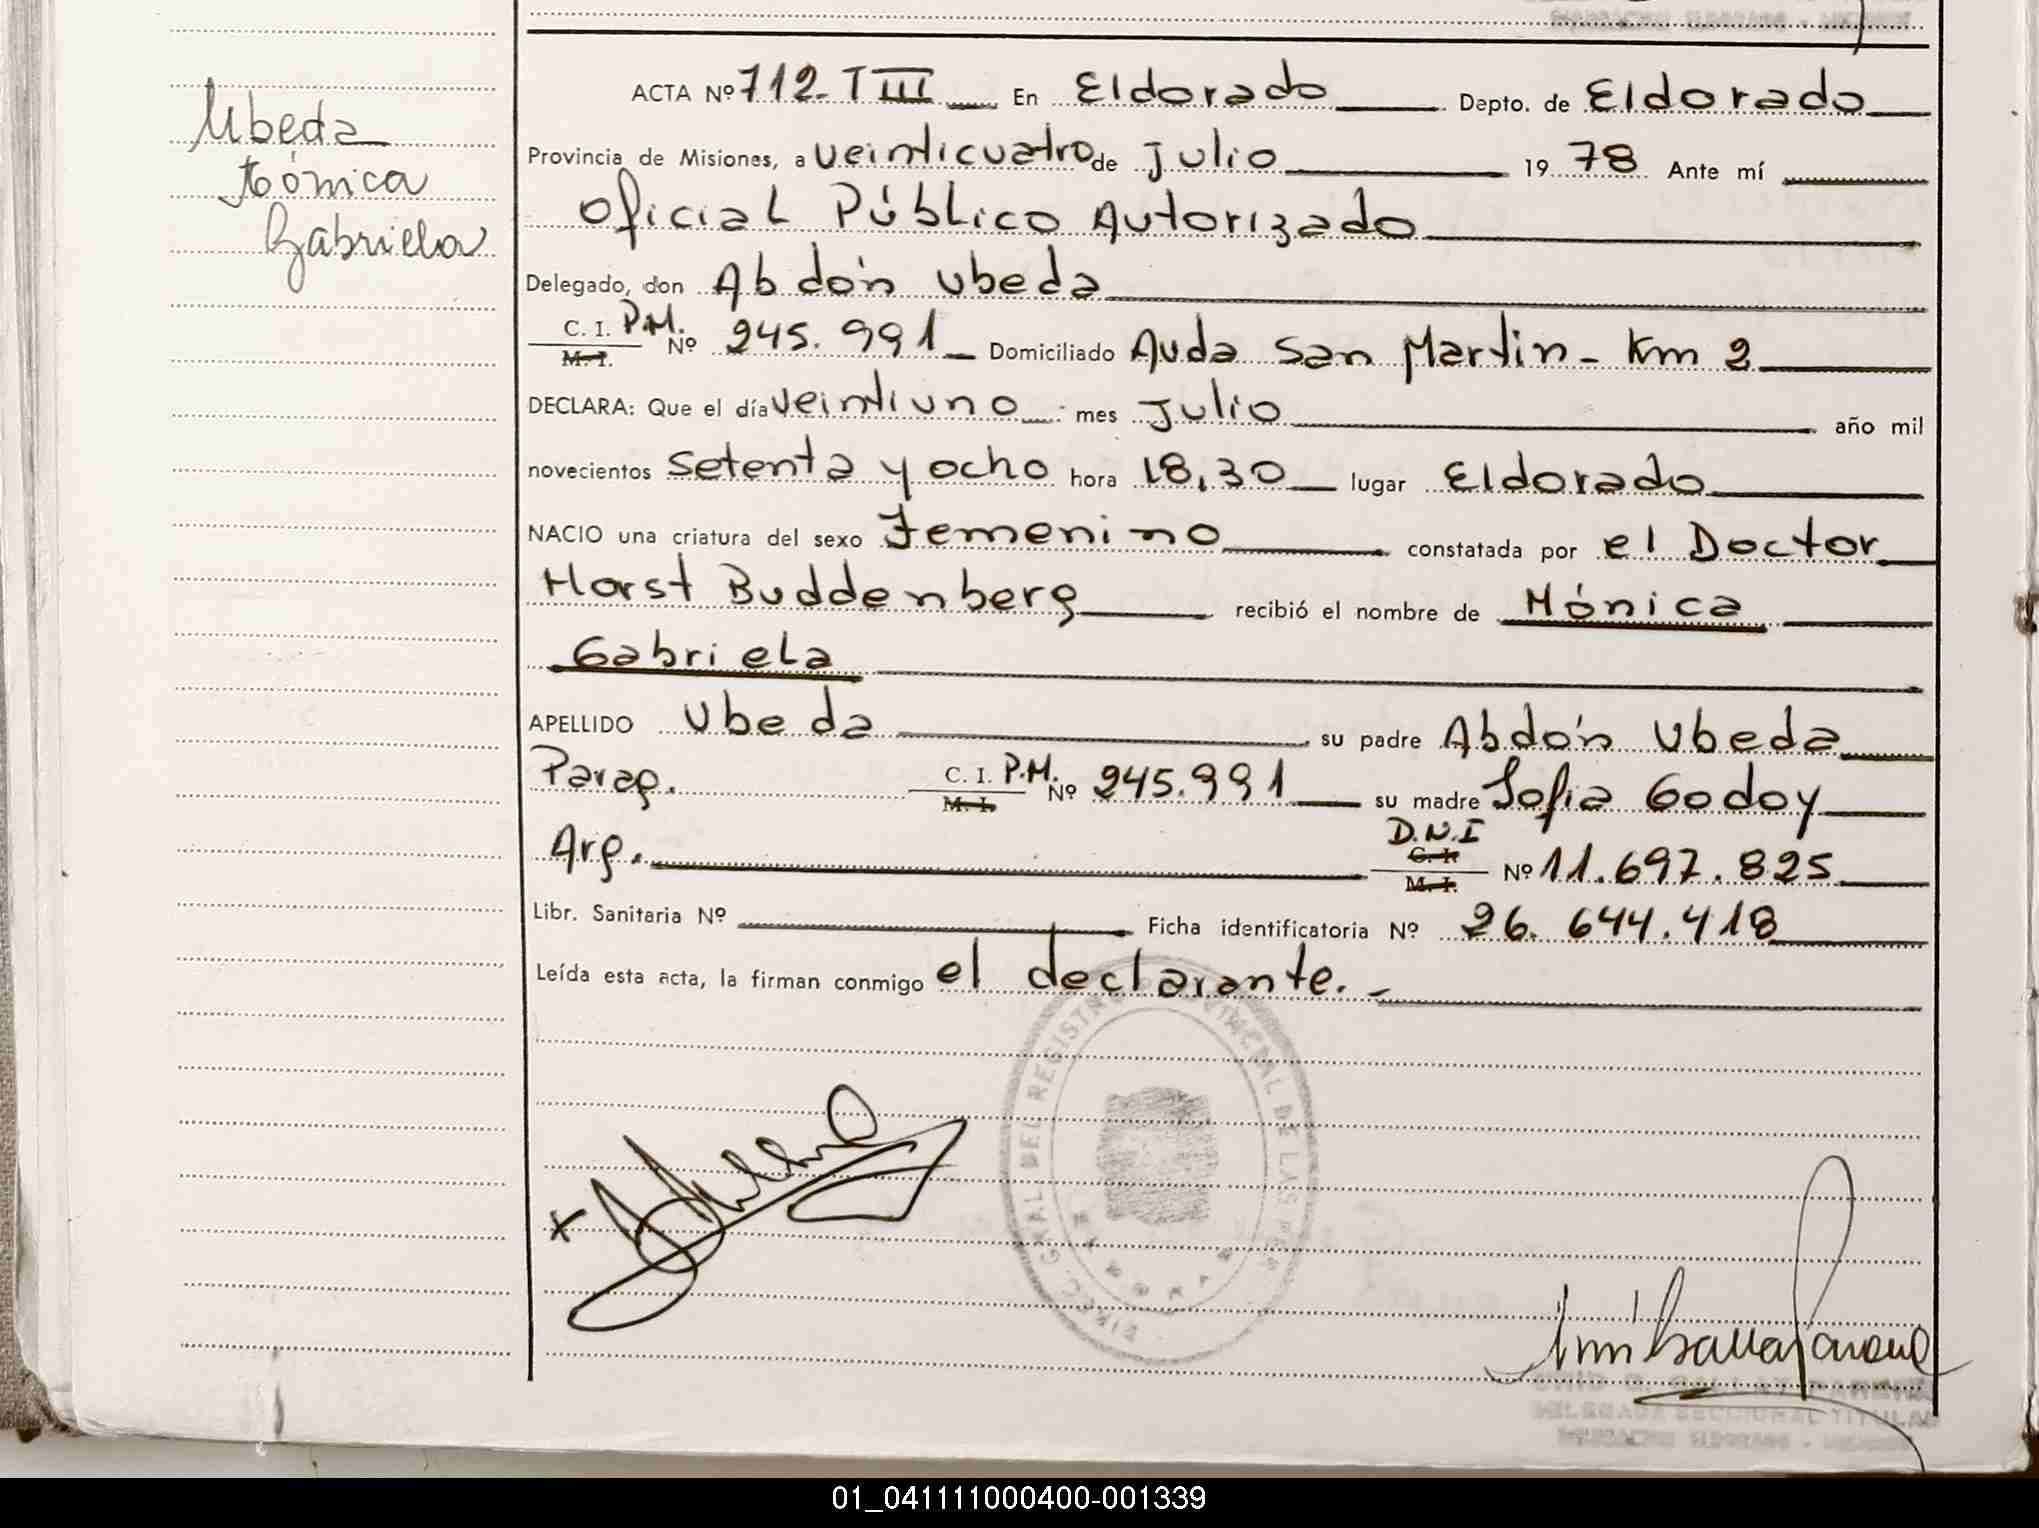 Ubeda
Mónica
Gabriela
ACTA Nº 712- T III En Eldorado Depto. de Eldorado
Provincia de Misiones, a veinticuatro de Julio 19 78 Ante mí
Oficial Público Autorizado
Delegado, don Abdón Ubeda
C. I. P.M. M. I. Nº 245.991 Domiciliado Avda San Martin - Km 2
DECLARA: Que el día veintiuno mes Julio año mil
novecientos setenta y ocho hora 18,30 lugar Eldorado
NACIO una criatura del sexo Femenino constatada por el Doctor
Horst Buddenberg recibió el nombre de Mónica
Gabriela
APELLIDO Ubeda su padre Abdón Ubeda
Parag. C. I. P.M. M. I. Nº 245.991 su madre Sofia Godoy
Arg. D.N.I C. I. M. I. Nº 11.697.825
Libr. Sanitaria Nº Ficha identificatoria Nº 26.644.418
Leída esta acta, la firman conmigo el declarante. -
DIREC. GRAL DEL REGISTRO PROVINCIAL DE LAS
DELEGADA SECCIONAL TITULAR
ELDORADO - MISIONES
01_041111000400-001339